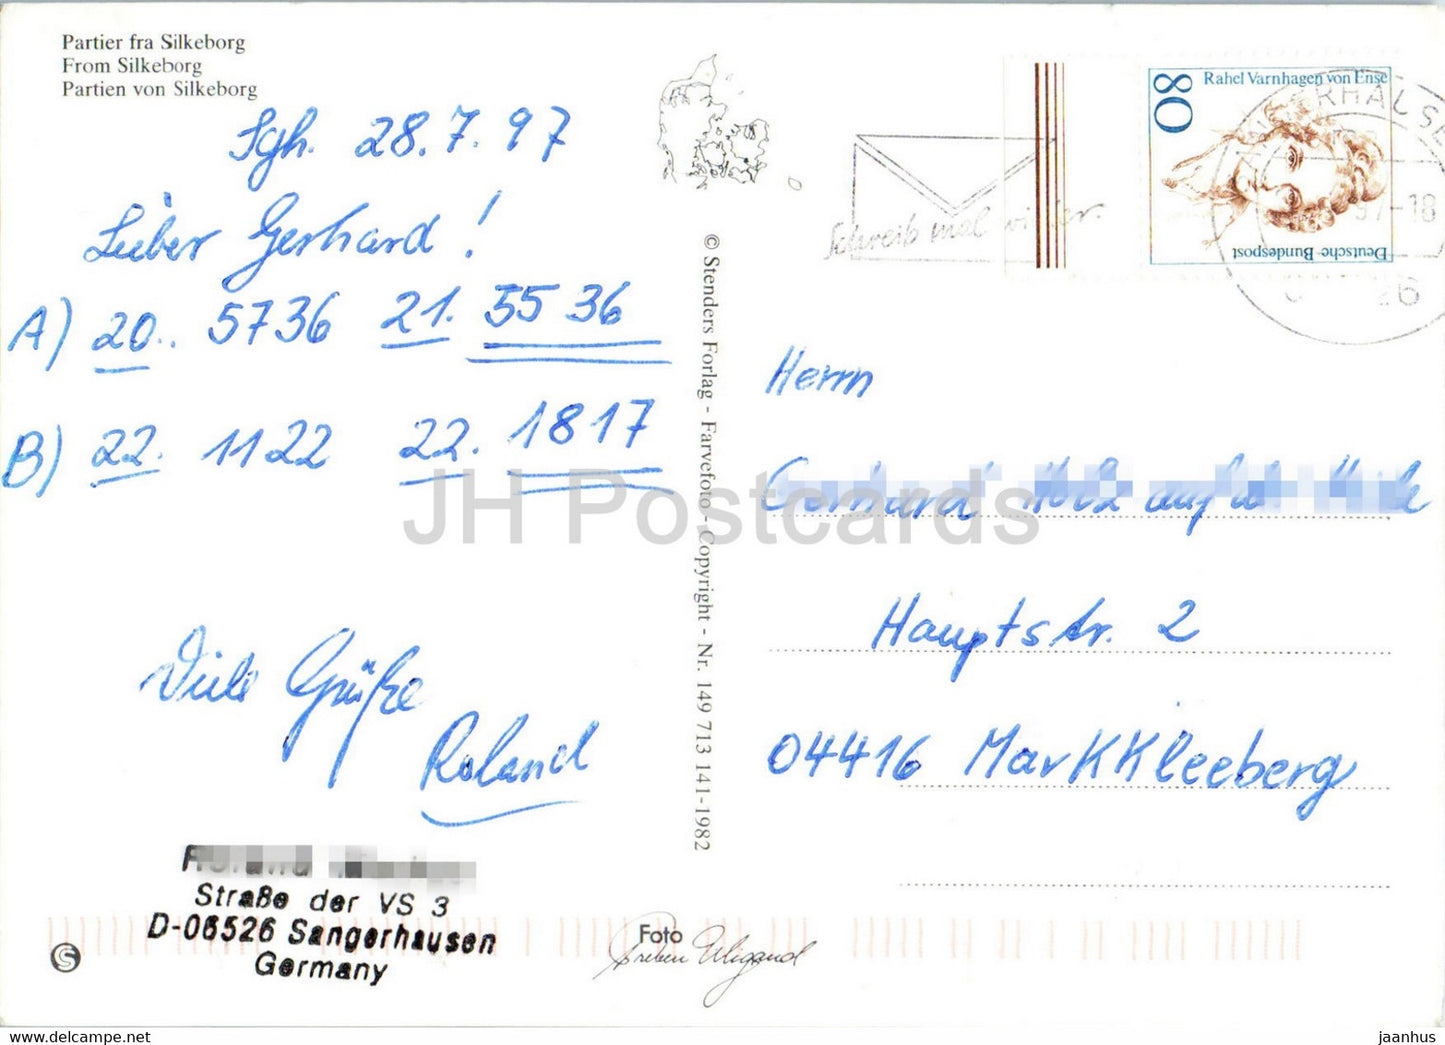 Partier fra Silkeborg
From Silkeborg
Partien von Silkeborg
Sgh. 28.7.97
Lieber Gerhard!
A) 20.. 5736 21. 55 36
B) 22. 1122 22. 1817
Viele Grüße
Roland
Straße der VS 3
D-06526 Sangerhausen
Germany
© Stenders Forlag - Farvefoto - Copyright - Nr. 149 713 141-1982
Foto
Preben Wigand
Schreib mal wieder.
80
Rahel Varnhagen von Ense
Deutsche Bundespost
97-18
26
Herrn
Gerhard auf
Hauptstr. 2
04416 Markkleeberg
S
JH Postcards
jaanhus